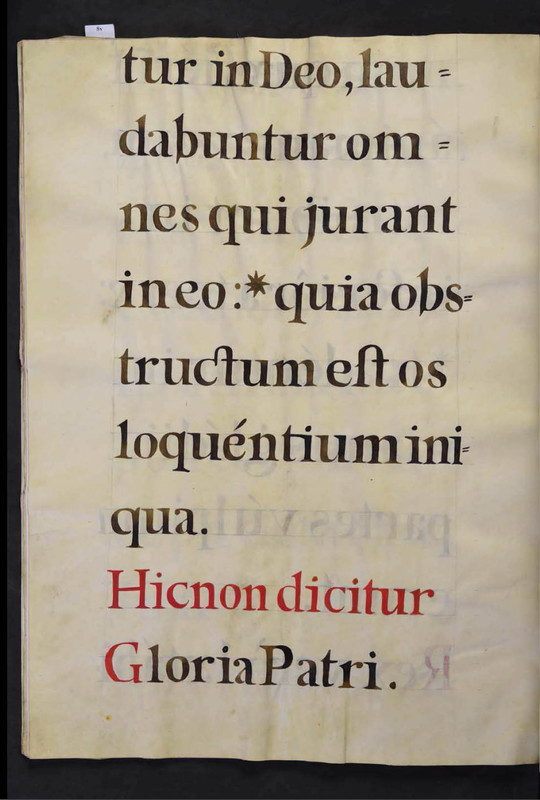 tur in Deo, lau=
dabuntur om=
nes qui jurant
in eo :* quia obs=
tructum est os
loquéntium ini=
qua.
Hic non dicitur
Gloria Patri.